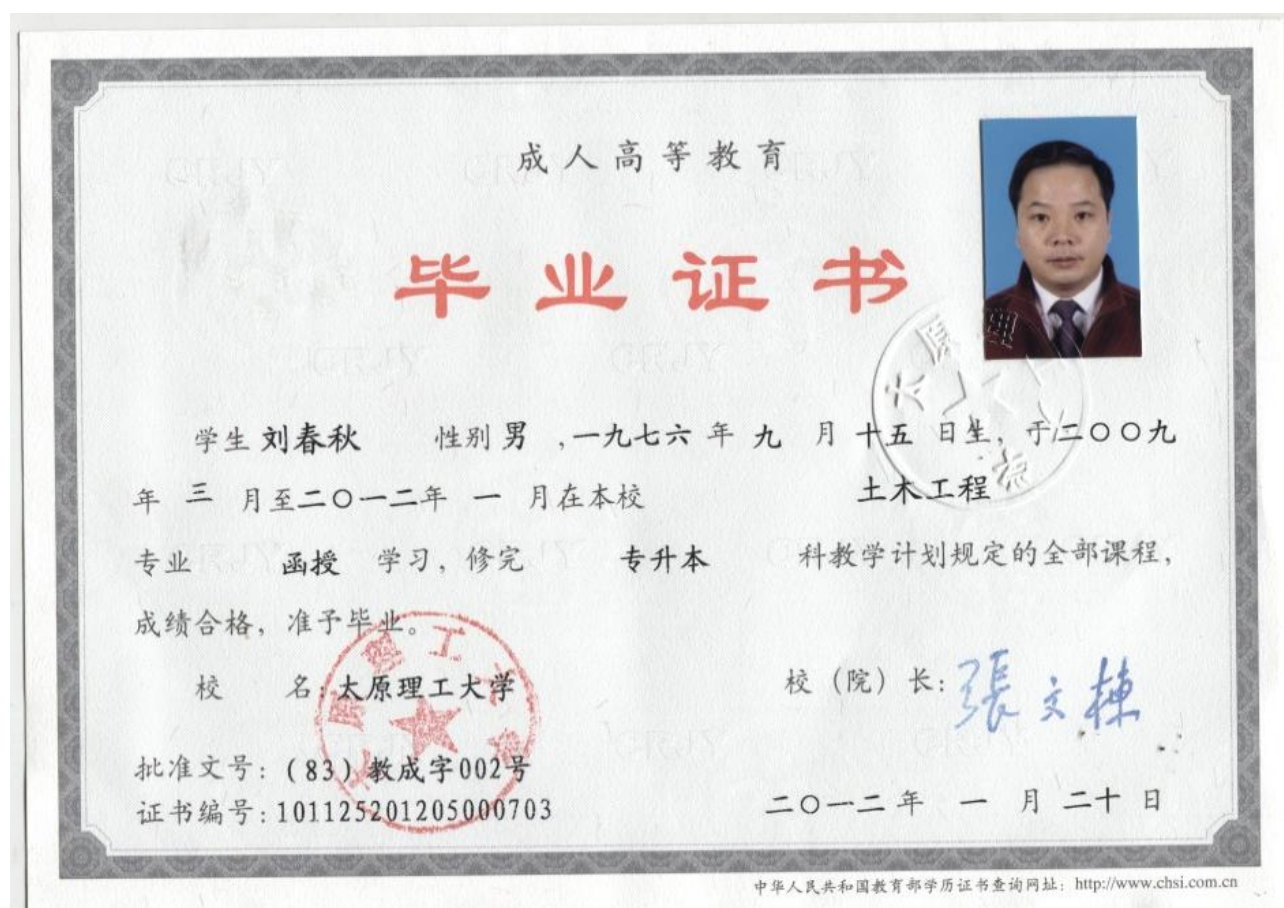 成人高等教育
毕业证书
学生 刘春秋 性别 男 ,一九七六 年 九 月 十五 日生, 于二〇〇九
年 三 月至二〇一二年 一 月在本校 土木工程
专业 函授 学习, 修完 专升本 科教学计划规定的全部课程,
成绩合格, 准予毕业。
校 名: 太原理工大学
校 (院) 长: 張文棟
批准文号: (83) 教成字002号
证书编号: 101125201205000703
二〇一二 年 一 月 二十 日
中华人民共和国教育部学历证书查询网址: http://www.chsi.com.cn